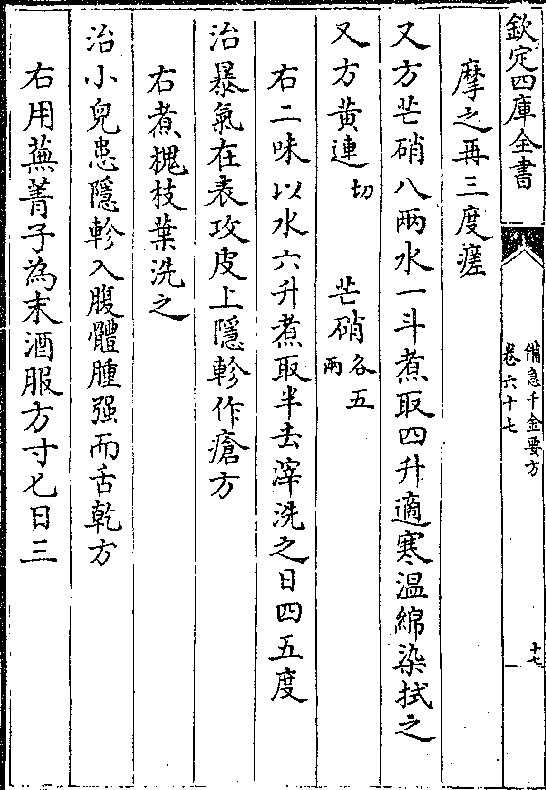 欽定四庫全書
備急千金要方
卷六十七
十七
摩之再三度瘥
又方芒硝八兩水一斗煮取四升適寒溫綿染拭之
又方黃連切 芒硝各五兩
右二味以水六升煮取半去滓洗之日四五度
治暴氣在表攻皮上隱軫作瘡方
右煮槐枝葉洗之
治小兒患隱軫入腹體腫强而舌乾方
右用蕪菁子為末酒服方寸匕日三